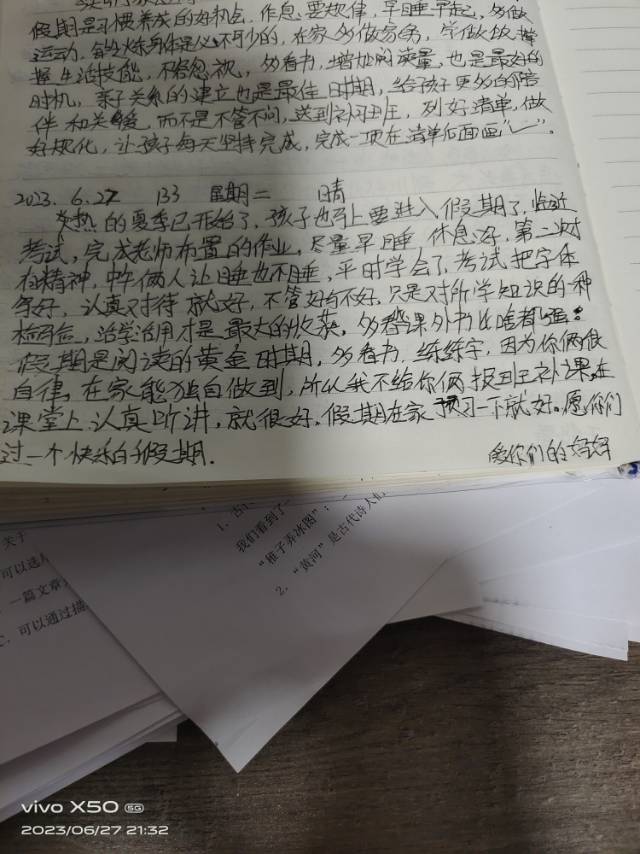 假期是习惯养成的好机会，作息要规律，早睡早起，多做
运动，锻炼身体是必不可少的，在家多做家务，学做饭，掌
握生活技能，不容忽视，多看书，增加阅读量，也是最好的
时机，亲子关系的建立也是最佳时期，给孩子更多的陪
伴和关爱，而不是不管不问，送到补习班，列好清单，做
好规化，让孩子每天坚持完成，完成一项在清单后面画“✓”。
2023.6.27 133 星期二 晴
炎热的夏季已开始了，孩子也马上要进入假期了，临近
考试，完成老师布置的作业，尽量早睡，休息好，第二天才
有精神，中午俩人让睡也不睡，平时学会了，考试把字体
写好，认真对待就好，不管好与不好，只是对所学知识的一种
检验，活学活用才是最大的收获，多看课外书比啥都强！
假期是阅读的黄金时期，多看书，练练字，因为你俩做
自律，在家能独自做到，所以我不给你俩报班补课，在
课堂上认真听讲，就很好，假期在家预习一下就好。愿你们
过一个快乐的假期．
爱你们的妈妈
关于
可以选
一篇文章
可以通过描
1. 古
我们看到了
“稚子弄冰图”：
2. “黄河”是古代诗人
vivo X50 5G
2023/06/27 21:32